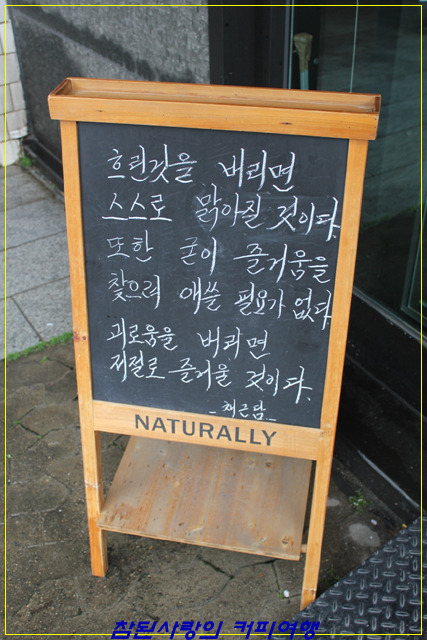 흐린것을 버리면
스스로 맑아질 것이다.
또한 굳이 즐거움을
찾으려 애쓸 필요가 없다
괴로움을 버리면
저절로 즐거울 것이다.
- 채근담 -
NATURALLY
참된사랑의 커피여행